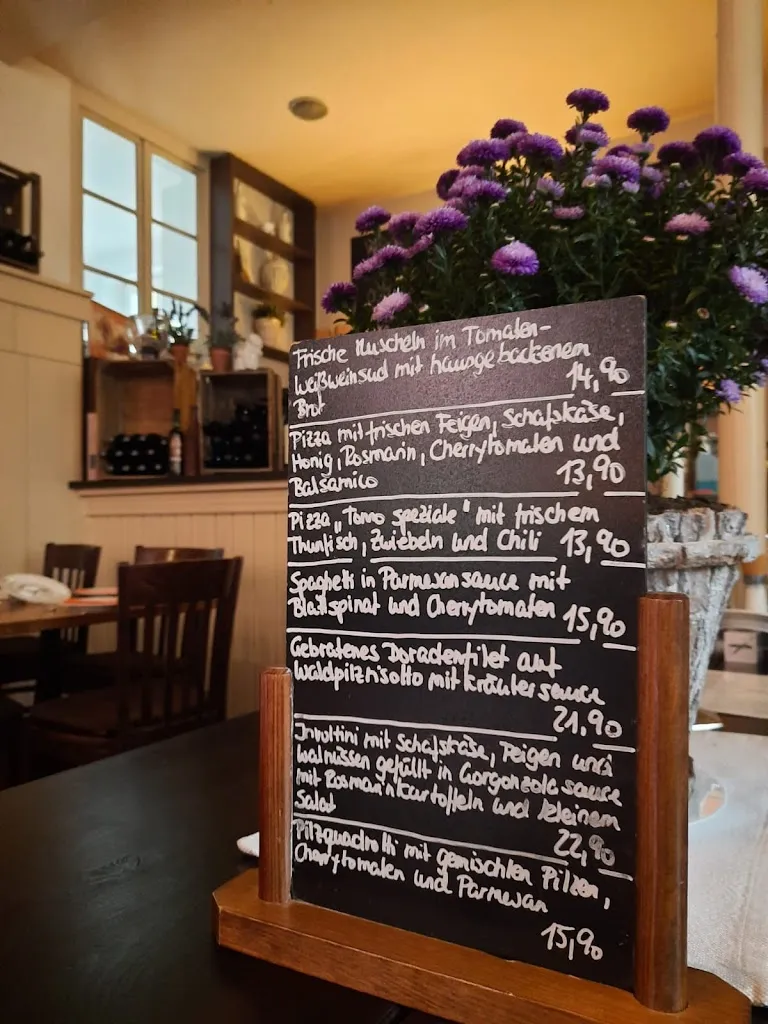 Frische Muscheln im Tomaten-
Weißweinsud mit hausgebackenem
Brot 14,90
Pizza mit frischen Feigen, Schafskäse,
Honig, Rosmarin, Cherrytomaten und
Balsamico 13,90
Pizza „Tonno speziale" mit frischem
Thunfisch, Zwiebeln und Chili 13,90
Spaghetti in Parmesansauce mit
Blattspinat und Cherrytomaten 15,90
Gebratenes Doradenfilet auf
Waldpilzrisotto mit Kräutersauce
21,90
Involtini mit Schafskäse, Feigen und
Walnüssen gefüllt in Gorgonzolasauce
mit Rosmarinkartoffeln und kleinem
Salat 22,90
Pilzquadrotti mit gemischten Pilzen,
Cherrytomaten und Parmesan
15,90